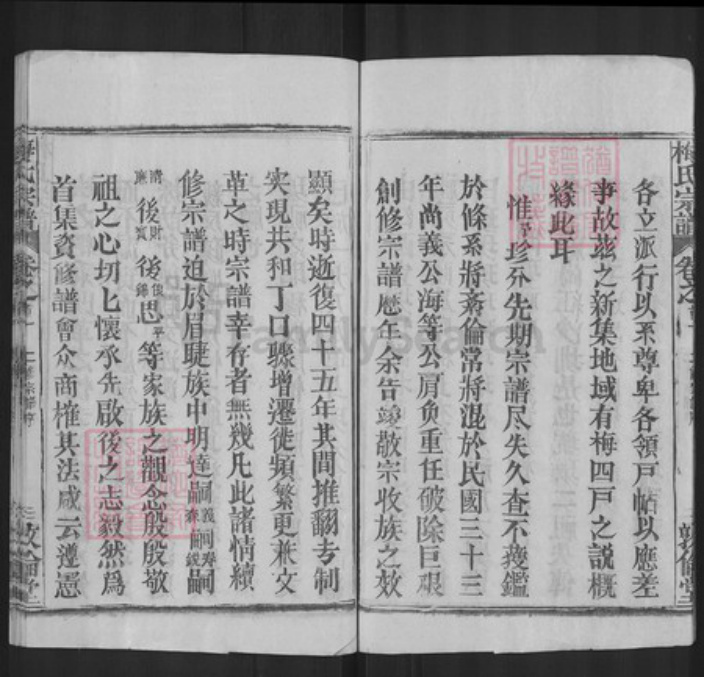 梅氏宗譜
各立派行以系尊卑各領戶帖以應差
事故茲之新集地域有梅四戶之說概
緣此耳
惟予珍分先期宗譜尽失久查不獲鑑
於條系將紊倫常將混於民國三十三
年尚義公海等公肩負重任破除巨艰
創修宗譜歷年余告竣敬宗收族之效
顯矣時逝復四十五年其間推翻专制
实現共和丁口驟增遷徙頻繁更兼文
革之時宗譜幸存者無幾凡此諸情續
修宗譜迫於眉睫族中明達嗣義嗣春嗣嗣
清廉後財後俊思平等家族之觀念殷殷敬
祖之心切匕懷承先啟後之志毅然爲
首集資修譜會众商榷其法咸云遵憑
梅氏宗譜 卷之首
FamilySearch